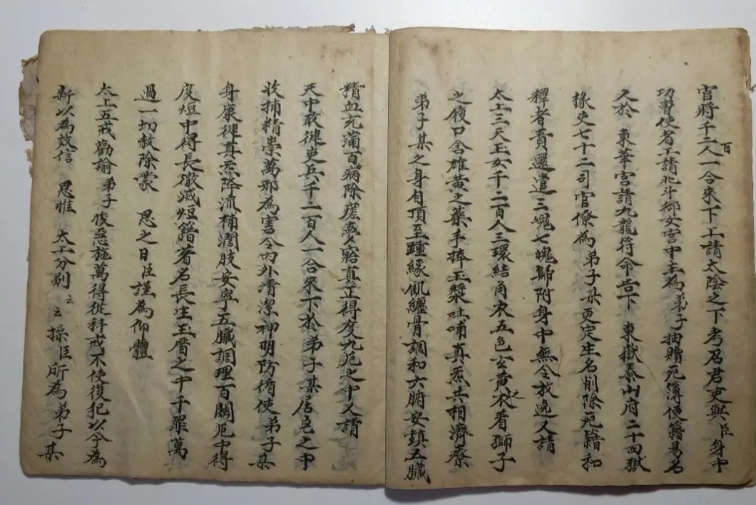 官將千二百人一合來下上請太陰之下考召君吏與臣身中
功曹使者又請北斗鄉女宮中主為弟子抽贖死簿使籍易名
久於東華宮請九龍符命告下東嶽泰山府二十四獄
掾史七十二司官僚為弟子某更定生名削除死籍和
釋者責還遣三魂七魄歸附身中無令放逸又請
太上三天玉女千二百人三環結角衣五色玄黃衣着獅子
之履口含雄黃之藥手捧玉漿吐哺真炁共相濟療
弟子某之身自頂至踵緣肌纏骨調和六腑安鎮五臟
精血充滿百病除差夢寤真正得度九厄之中又請
天中收捕吏兵千二百人一合來下於弟子某居宅之中
收捕精祟萬邪為害令內外清潔神明防備使弟子某
身康裡真炁降流補潤肢安寧五臟調理百關厄中得
度短中得長徹滅短籍著名長生玉曆之中千罪萬
過一切赦除蒙 恩之日臣謹為仰體
太上五戒勸諭弟子俊惡施萬得從科戒不使復犯以今為
新以為效信 恩惟 太上分別云云操臣所為弟子某